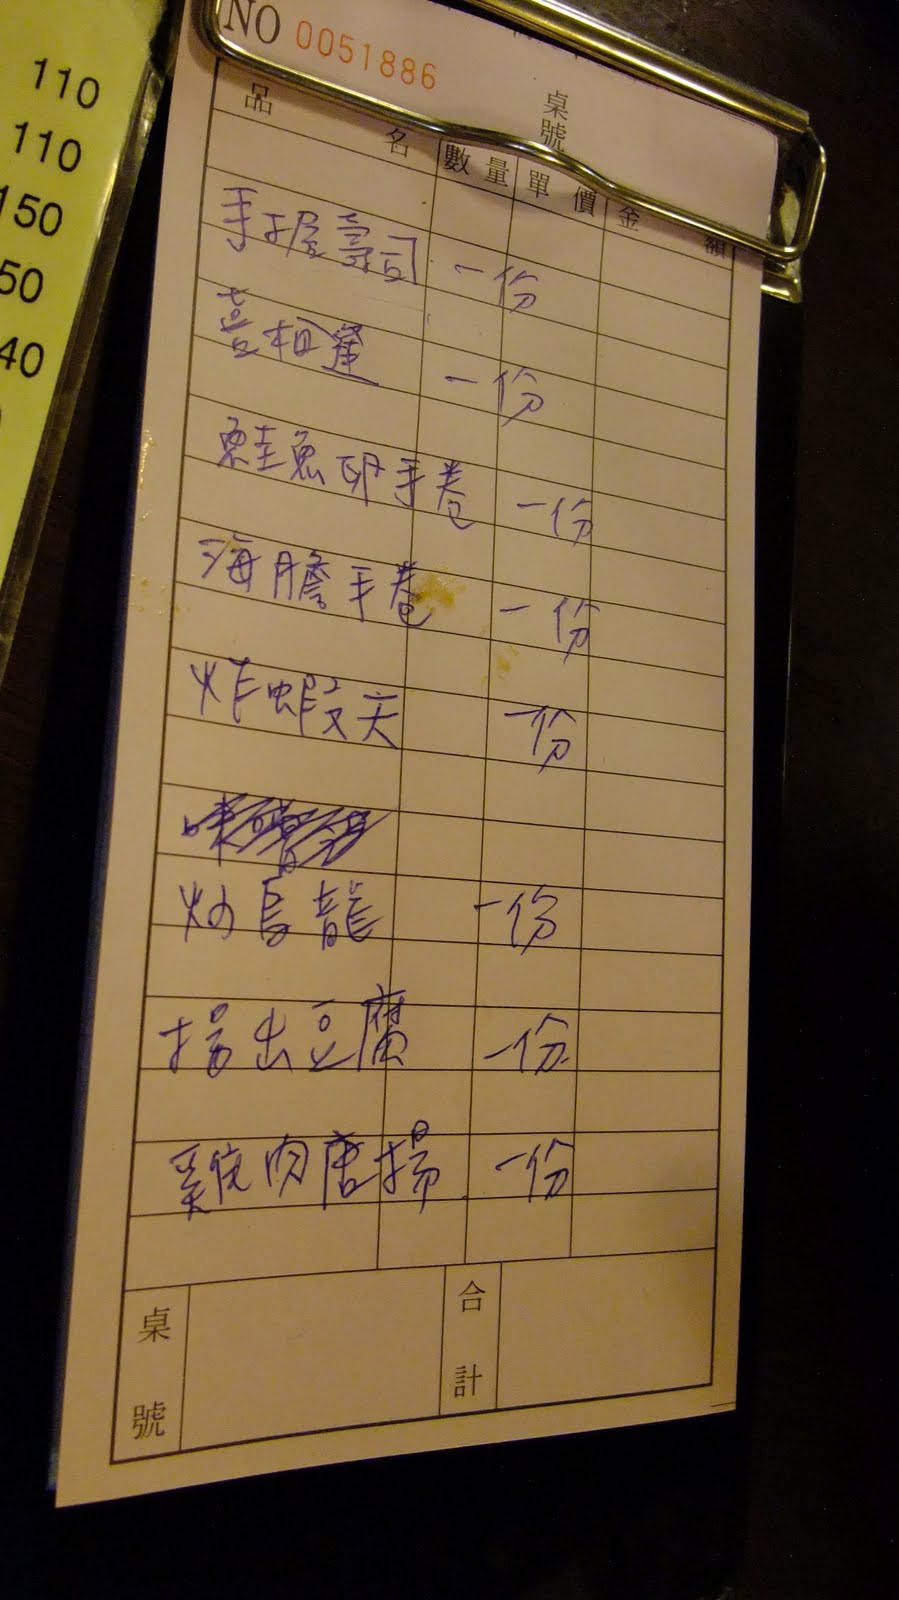 110
110
150
50
40
NO 0051886
桌號
品名 數量 單價 金額
手握壽司 一份
喜相逢 一份
鮭魚卵手卷 一份
海膽手卷 一份
炸蝦天 一份
炒烏龍 一份
揚出豆腐 一份
雞肉唐揚 一份
桌號 合計